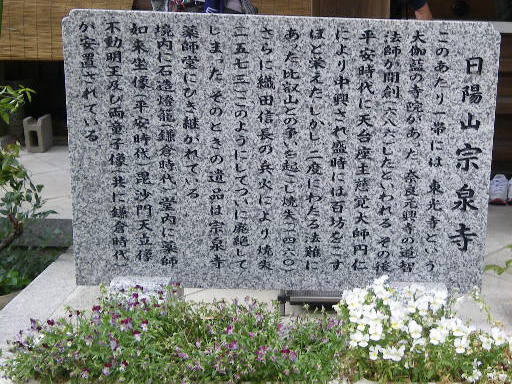 日陽山 宗泉寺
このあたり一帯には、東光寺という
大伽藍の寺院があった。奈良元興寺の道智
法師が開創(八八二)したといわれる。その後
平安時代に天台座主慈覚大師円仁
により中興され盛時には百坊をこす
ほど栄えた。しかし二度にわたる法難に
あった。比叡山との争いを起こし焼失(一四六〇)
さらに織田信長の兵火により焼失
(一五七三)このようにしてついに廃絶して
しまった。そのときの遺品は宗泉寺
薬師堂にひき継がれている。
境内に石造燈籠(鎌倉時代)堂内に薬師
如来坐像(平安時代)毘沙門天立像
不動明王及び両童子像(共に鎌倉時代)
が安置されている。